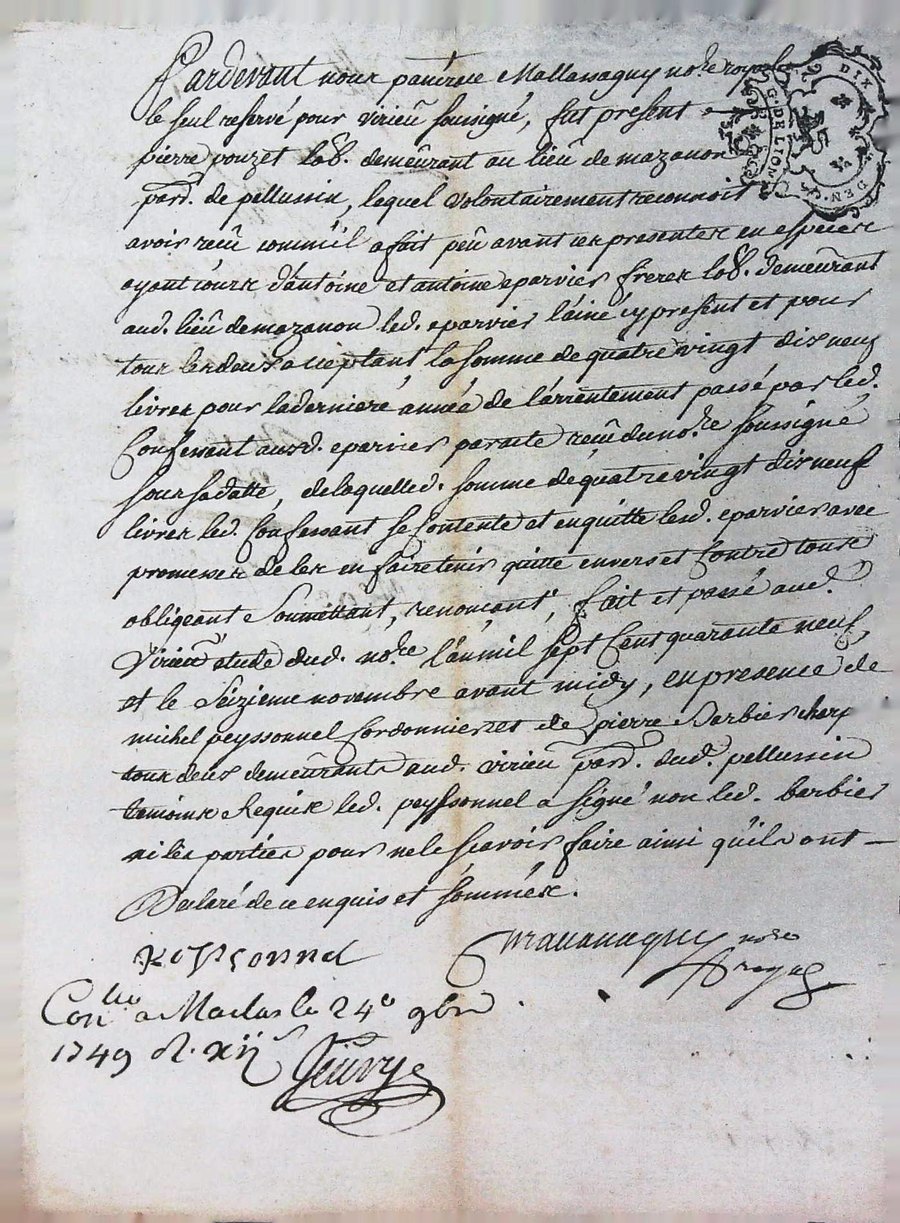 Pardevant nous pancrace Mallassagny no.re royal
le seul reservé pour virieu soussigné, fut present
pierre pouzet lab. demeûrant au lieû de mazanon
parr. de pellussin, lequel volontairement reconnoit
avoir reçû comm'il a fait peû avant ces presentes en especes
ayant cours d'antoine et antoine eparvier freres lab. demeûrant
aud. lieû de mazanon led. eparvier l'ainé cy present et pour
tous les deux acceptant la somme de quatre vingt dix neuf
livres pour la derniere année de l'arrentement passé par led.
Confessant ausd. eparvier par acte reçû du no.re soussigné
sous sa datte, de laquelle d. somme de quatre vingt dix neuf
livres led. Confessant se Contente et en quitte lesd. eparvier avec
promesses de les en faire tenir quitte envers et Contre tous
obligeant Soumettant, renonçant, fait et passé aud.
Virieu etude dud. no.re l'an mil sept Cent quarante neuf
et le Seizieme novembre avant midy, en presence de
michel peyssonnel Cordonnier et de pierre Barbier
tous deux demeûrants aud. virieû parr. dud. pellussin
temoins Requis led. peyssonnel a signé non led. barbier
ni les parties pour ne le sçavoir faire ainsi qu'ils ont
Declaré de ce enquis et sommés.
peyssonnel
Mallassagny no.re
royal
Con.lle a Maclas le 24e 9bre
1749 R. xii s
G. DE LION
DIX
DEN.